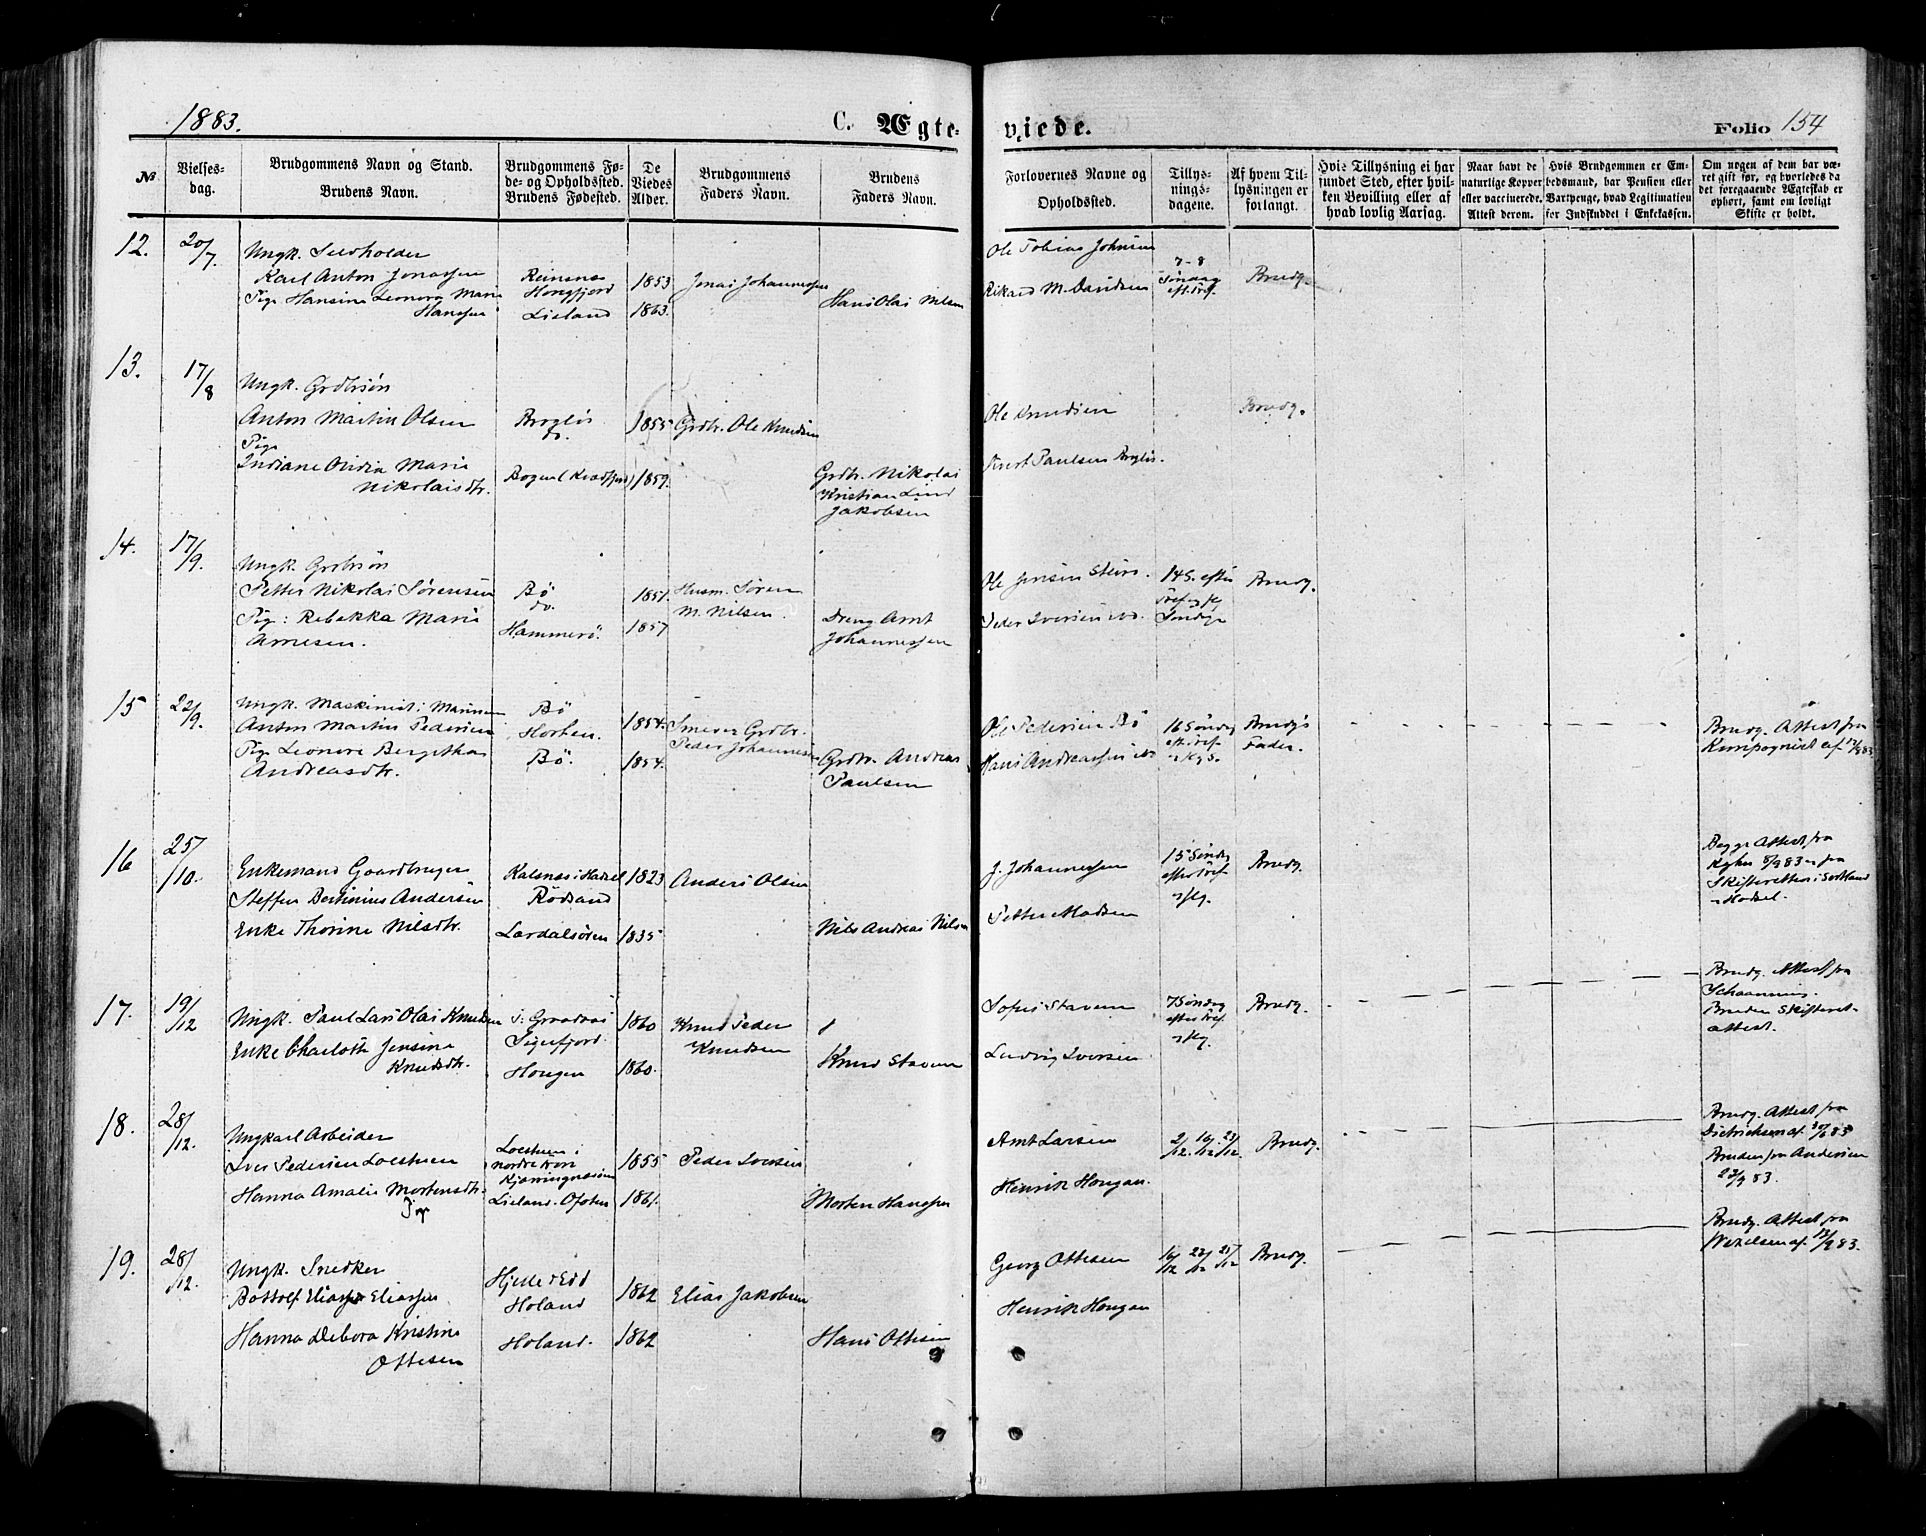 1883.
C. Ægte-
viede.
Folio 154
№
Vielses-
dag.
Brudgommens Navn og Stand.
Brudens Navn.
Brudgommens Fø-
de- og Opholdssted.
Brudens Fødested.
De
Viedes
Alder.
Brudgommens
Faders Navn.
Brudens
Faders Navn.
Forlovernes Navne og
Opholdssted.
Tillys-
nings-
dagene.
Af hvem Til-
lysningen er
forlangt.
Hvis Tillysning ei har
fundet Sted, efter hvil-
ken Bevilling eller af
hvad lovlig Aarsag.
Naar havt de
naturlige Kopper
eller vaccinerede.
Attest derom.
Hvis Brudgommen er Em-
bedsmand, har Pension eller
Vartpenge, hvad Legitimation
for Indskuddet i Enkekassen.
Om nogen af dem har væ-
ret gift før, og hvorledes da
det foregaaende Ægteskab er
ophørt, samt om lovligt
Skifte er holdt.
12.
20/7.
Ungk.
Karl Anton Jonassen
Pige Hansine Leonora Marie
Hanssen
Reinsnes
Hongfjord
Lieland
1853
1863.
Jonas Johannessen
Hans Olai Nilsen
Ole Tobias Johnsen
Rikard M. Davidsen
7-8
Søndag
eft. Tref.
Brudg.
13.
17/8
Ungk. Grdbrsøn
Anton Martin Olsen
Pige
Indiane Ovidia Marie
Nikolaisdtr.
Borgløs
do.
Bogen (Kvædfjord)
1855
1859.
Grdbr. Ole Knudsen
Grdbr. Nikolai
Kristian Lind
Jakobsen
Ole Knudsen
Knut Paulsen Borgløs.
Brudg.
14.
17/9.
Ungk. Grdbrsøn
Petter Nikolai Sørensen
Pig: Rebekka Marie
Arnesen.
Bø
do.
Hammerø.
1851.
1857
Husm. Søren
M. Nilsen.
Dreng Arnt
Johannessen
Ole Jensen Steiro.
Peder Iversen ibd.
14 S. efter
Tref. og
Søndge
Brudg.
15
22/9.
Ungk. Maskinist i Marinen
Anton Martin Pedersen
Pige Leonore Bergitha
Andreasdtr.
Bø
Horten.
Bø.
1854.
1854.
Grdbr.
Peder Johannessen
Grdbr. Andreas
Paulsen
Ole Pedersen Bø
Hans Andreassen ibd
16 Søndag
eft. Tref.
Brudg's
Fader.
Brudg. Attest fra
12/9 83.
16
25/10.
Enkemand Gaardbruger
Steffen Bertinius Andersen
Enke Thorine Nilsdtr.
Kalsnæs i Hadsel
Rødsand
Lærdalsøren
1823
1835
Anders Olsen
Nils Andreas Nilsen
J. Johannessen
Petter Madsen
15 Søndag
efter Tref
Brudg.
Begge Attest fra
5/9 83 og fra
Skifteretten i Sortland
Hadsel.
17.
19/12
Ungk. Paul Lars Olai Knudsen
Enke Charlotte Jensine
Knudsdtr.
Sigerfjord.
Hougen
1860
1860.
Knud Peder
Knudsen
Knud Staven
Sofus Staven
Ludvig Iversen
7 Søndag
efter Tref.
Brudg.
Brudg. Attest fra
Schaanning.
Bruden Skifteret-
attest.
18.
28/12.
Ungkarl Arbeider
Iver Pedersen Loesthuen
Hanna Amalie Mortensdtr.
Pige
Loesthuen i
Nordre Fron
Kjærringnæsøen
Lieland. Ofoten
1855
1861.
Peder Iversen
Morten Hanssen
Arnt Larsen
Henrik Hougan.
2/12. 16/12 23/12.
Brudg.
Brudg. Attest fra
Dietrichsen af
Bruden fra Andersen
22/9 83.
19.
28/12.
Ungk. Snedker
Bottolf Eliassen
Hanna Debora Kristine
Ottesen
Hjelle i Eid
Holand
Holand.
1862
1862
Elias Jakobsen
Hans Ottesen
Georg Ottesen
Henrik Hougan
16/12 23/12 25/12
Brudg.
Brudg. Attest fra
Wexelsen af 12/9 83.